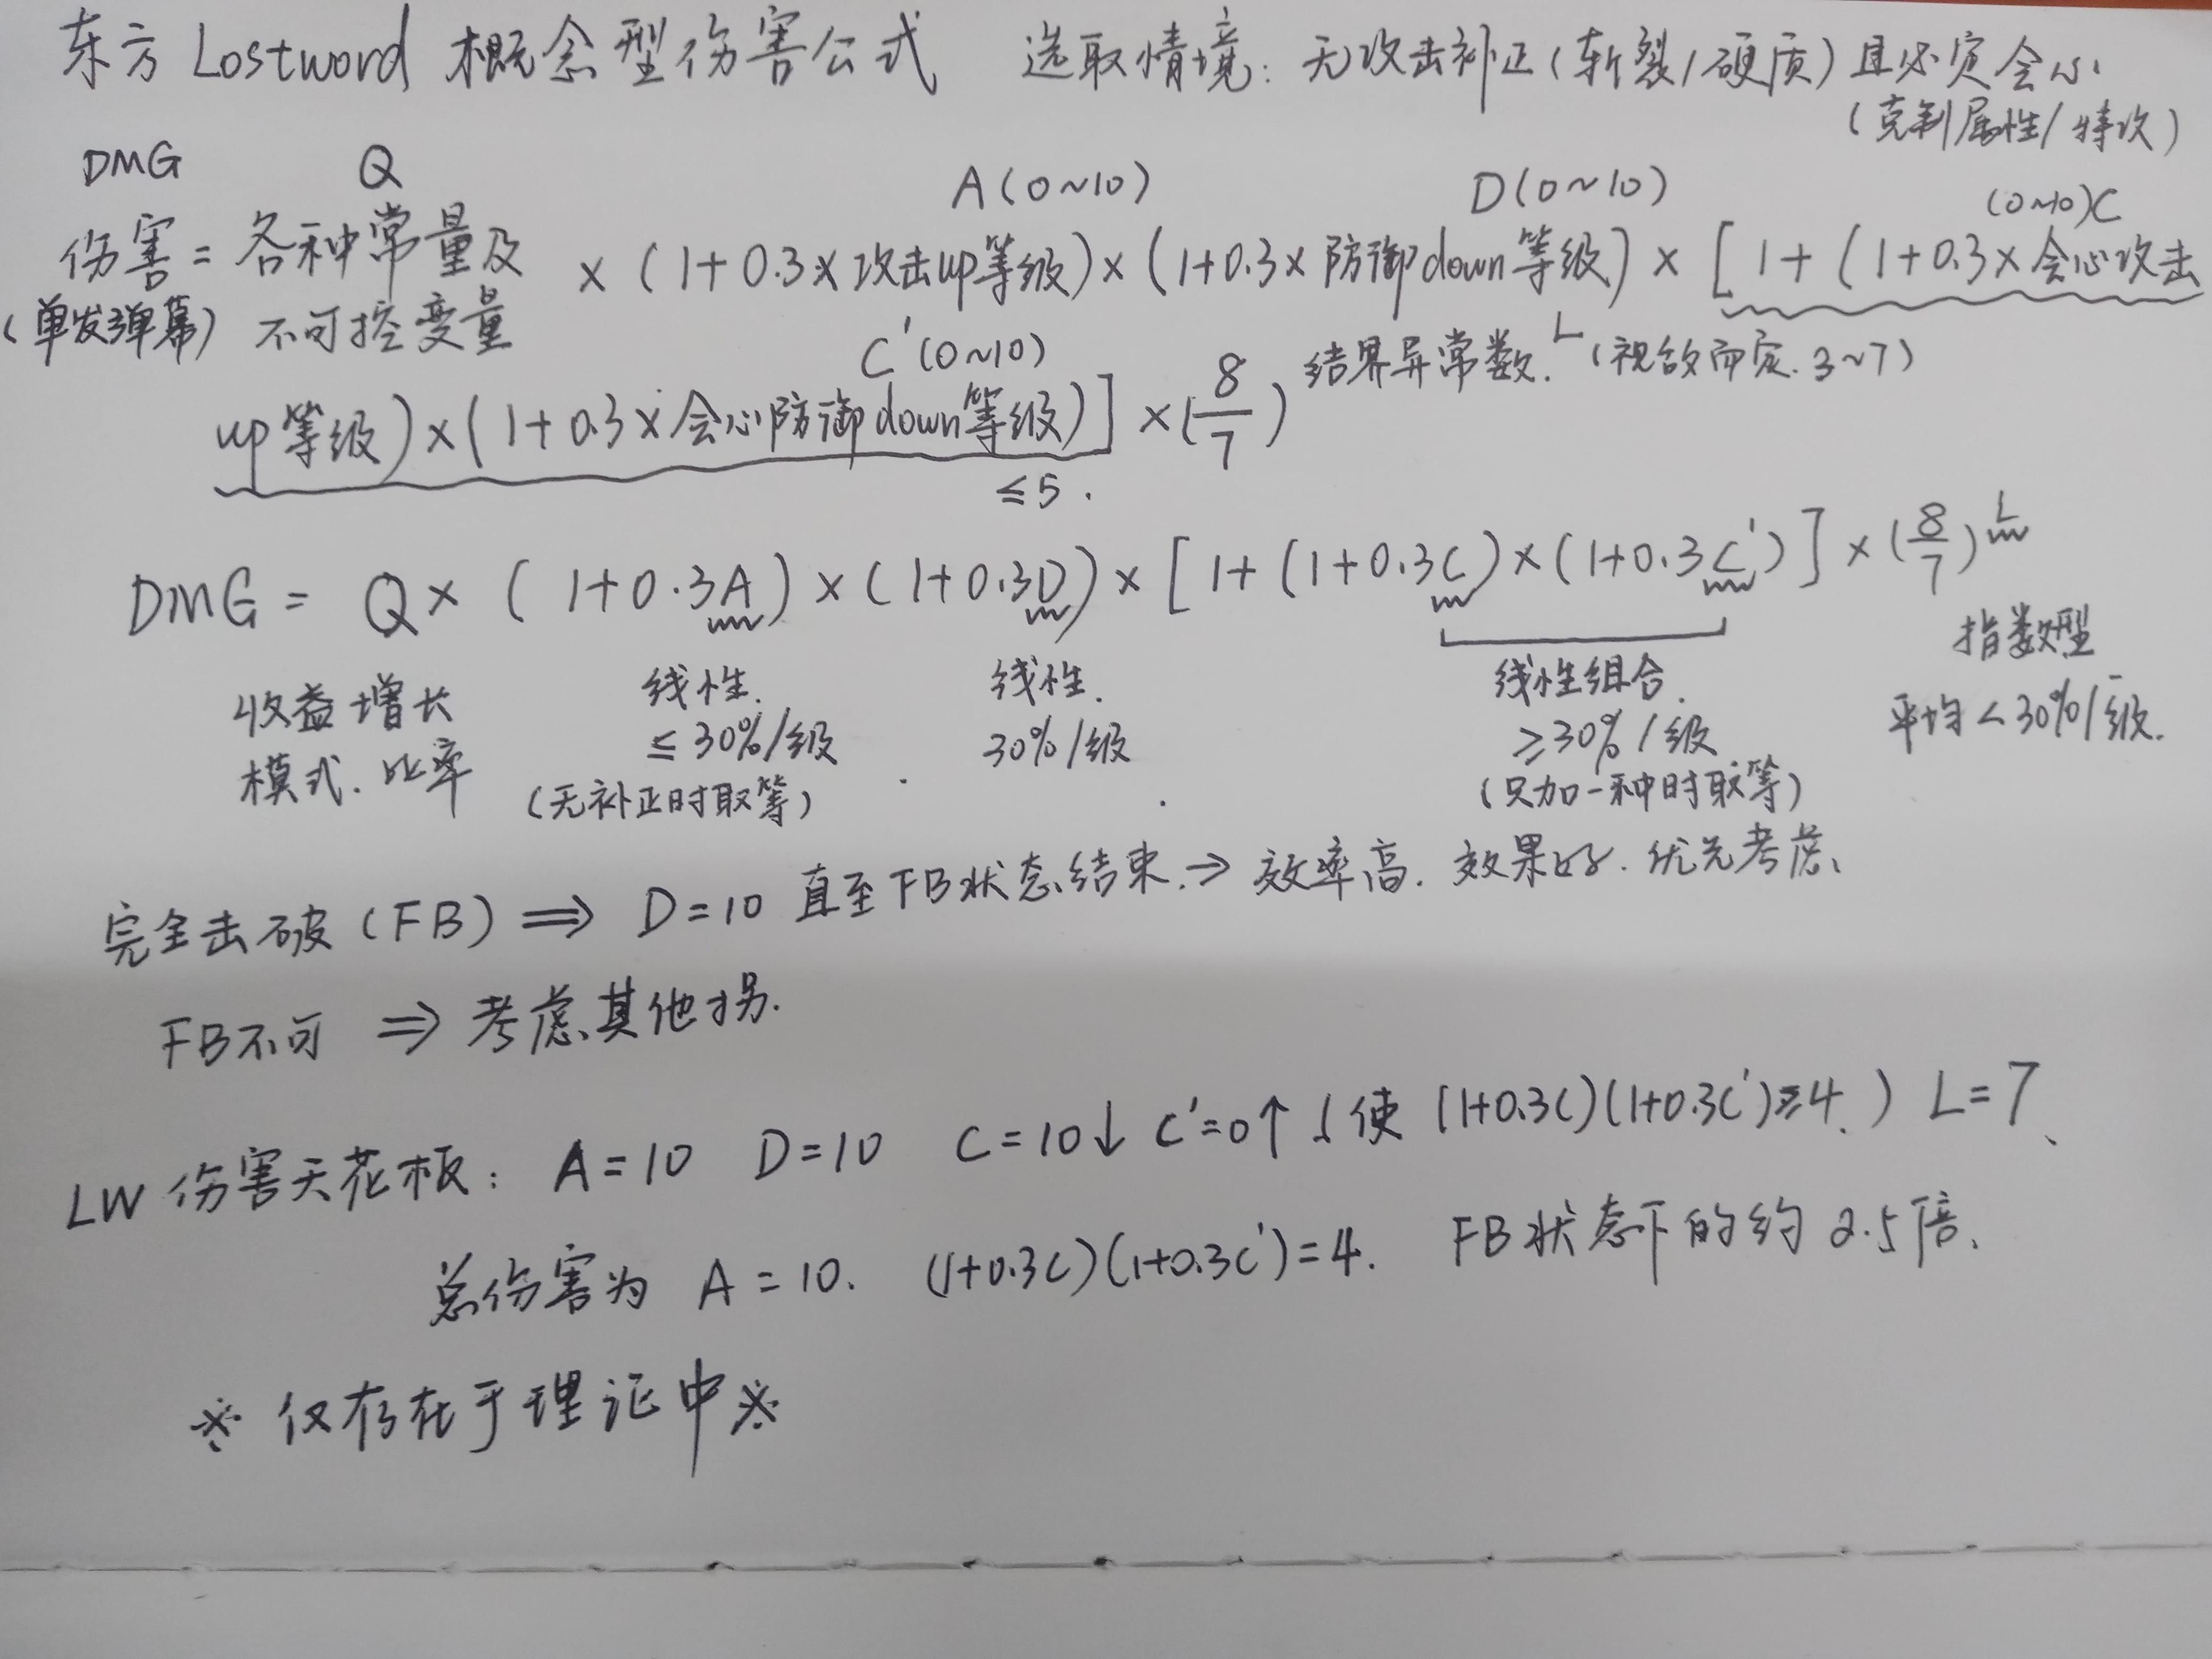 东方 Lostword 概念型伤害公式 选取情境: 无攻击补正(斩裂/硬质)且必定会心
(克制属性/特攻)
DMG Q A(0~10) D(0~10) (0~10)C
伤害 = 各种常量及 × (1+0.3×攻击up等级) × (1+0.3×防御down等级) × [1+(1+0.3×会心攻击
(单发弹幕) 不可控变量
C'(0~10) 结界异常数. L (视敌而定. 3~7)
up等级)×(1+0.3×会心防御down等级)] ×(8/7)
≤5.
DMG = Q× (1+0.3A)×(1+0.3D)×[1+(1+0.3C)×(1+0.3C')]×(8/7)^L
收益增长 线性. 线性. 线性组合. 指数型
模式.比率 ≤30%/级 30%/级 ≥30%/级 平均<30%/级.
(无补正时取等) (只加一种时取等)
完全击破(FB) ⇒ D=10 直至FB状态结束.→ 效率高. 效果好. 优先考虑、
FB不可 ⇒ 考虑其他拐.
LW伤害天花板: A=10 D=10 C=10↓ C'=0↑ (使 (1+0.3C)(1+0.3C')≥4.) L=7、
总伤害为 A=10. (1+0.3C)(1+0.3C')=4. FB状态下的约2.5倍、
※ 仅存在于理证中※